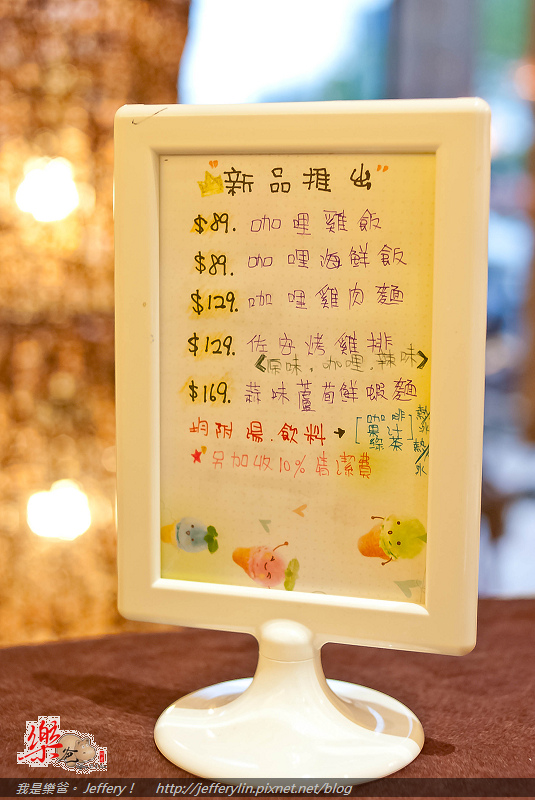 新品推出
$89. 咖哩雞飯
$89. 咖哩海鮮飯
$129. 咖哩雞肉麵
$129. 佐安烤雞排
<原味.咖哩.辣味>
$169. 蒜味蘆荀鮮蝦麵
均附湯.飲料→[咖啡 熱/冰
果汁
綠茶] 熱/冰
★另加收10%清潔費
樂爸
我是樂爸。Jeffery! http://jefferylin.pixnet.net/blog